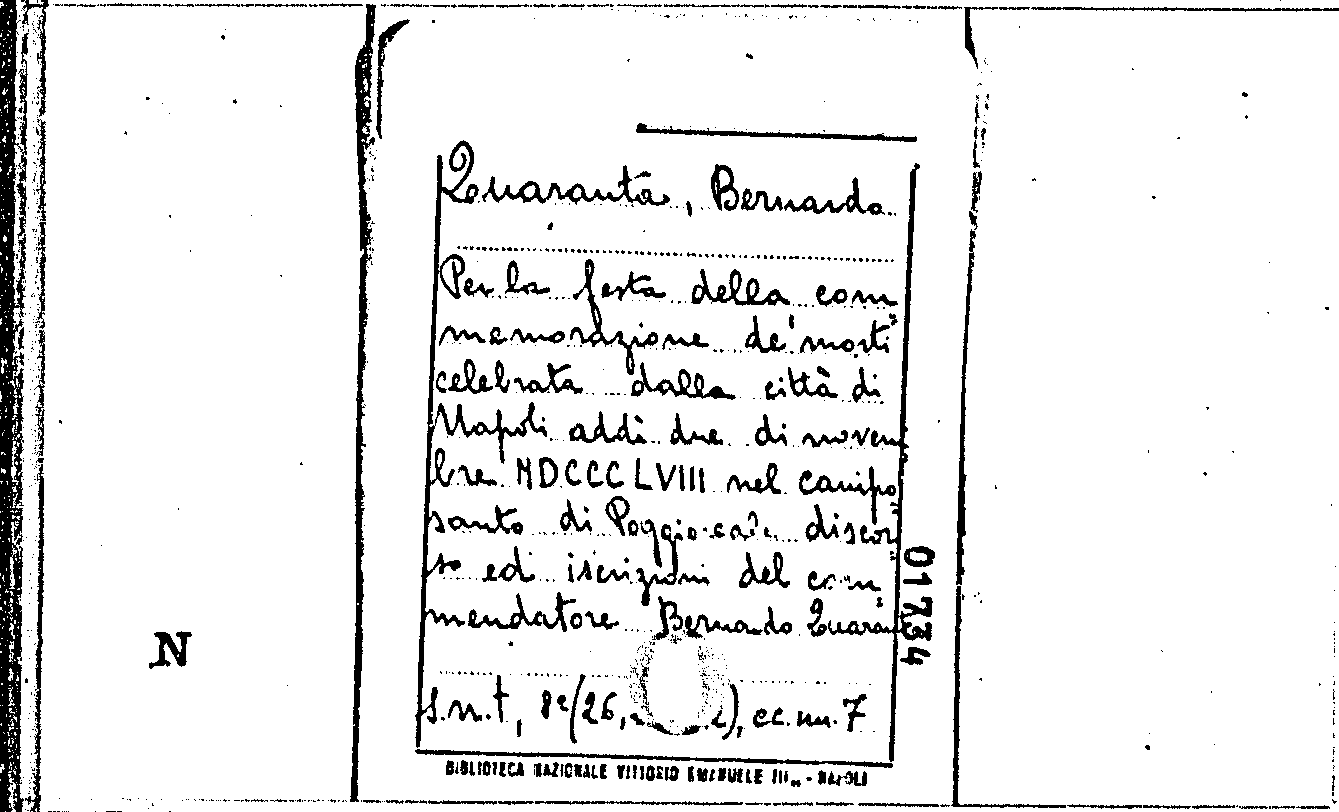 Quaranta, Bernardo
Per la festa della com=
memorazione de' morti
celebrata dalla città di
Napoli addì due di novem=
bre MDCCCLVIII nel campo=
santo di Poggio reale discor=
so ed iscrizioni del com=
mendatore Bernardo Quaran
s.n.t, 8º (26, cc. nn. 7
BIBLIOTECA NAZIONALE VITTORIO EMANUELE III - NAPOLI
01734
N